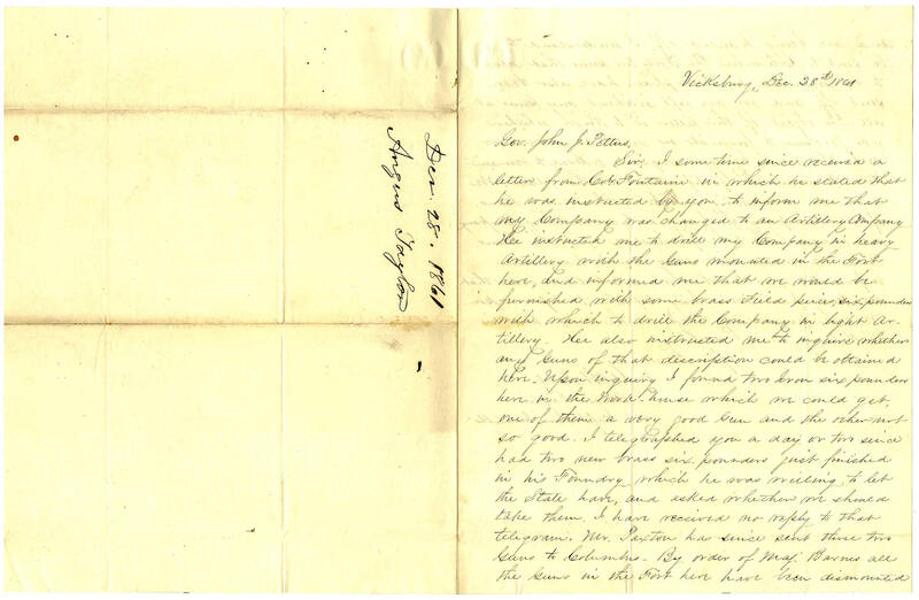 Dec. 28. 1861
Angus Taylor
Vicksburg, Dec. 28th 1861
Gov. John J. Pettus,
Sir, I some time since received a
letter from Col. Fontaine in which he stated that
he was instructed by you to inform me that
my Company was changed to an Artillery Company
He instructed me to drill my Company in heavy
Artillery with the Guns mounted in the Fort
here, and informed me that we would be
furnished with some brass Field pieces, six pounders
with which to drill the Company in light Ar-
tillery. He also instructed me to inquire whether
any Guns of that description could be obtained
here. Upon inquiry I found two Iron six pounders
here in the Work-house which we could get,
one of them a very good Gun and the other not
so good. I telegraphed you a day or two since
had two new brass six pounders just finished
in his Foundry which he was willing to let
the State have, and asked whether we should
take them. I have received no reply to that
telegram. Mr. Paxton has since sent those two
Guns to Columbus. By order of Maj. Barnes all
the Guns in the Fort here have been dismounted